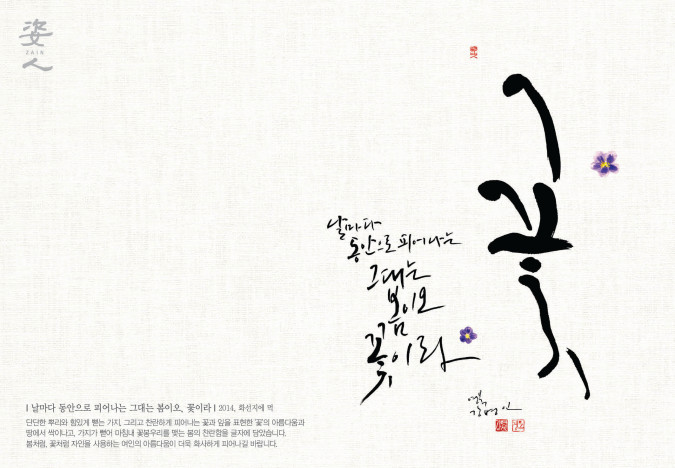 姿人
ZAIN
꽃
날마다
동안으로 피어나는
그대는
봄이오
꽃이라
| 날마다 동안으로 피어나는 그대는 봄이오, 꽃이라 | 2014, 화선지에 먹
단단한 뿌리와 힘있게 뻗는 가지, 그리고 찬란하게 피어나는 꽃과 잎을 표현한 '꽃'의 아름다움과
땅에서 싹이나고, 가지가 뻗어 마침내 꽃봉우리를 맺는 봄의 찬란함을 글자에 담았습니다.
봄처럼, 꽃처럼 자인을 사용하는 여인의 아름다움이 더욱 화사하게 피어나길 바랍니다.